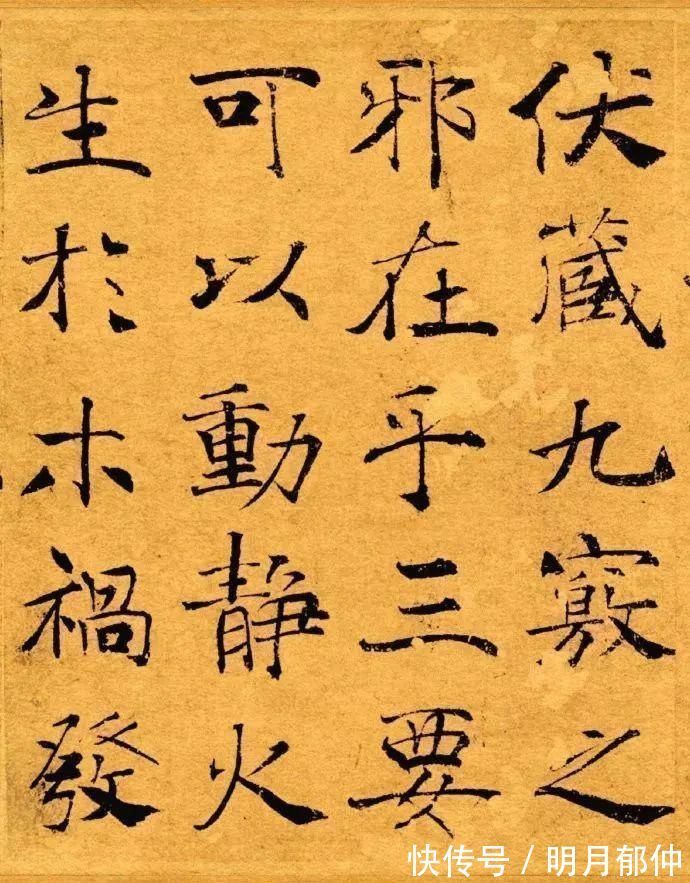 伏藏九竅之
邪在乎三要
可以動靜火
生於木禍發
快传号/明月郁仲